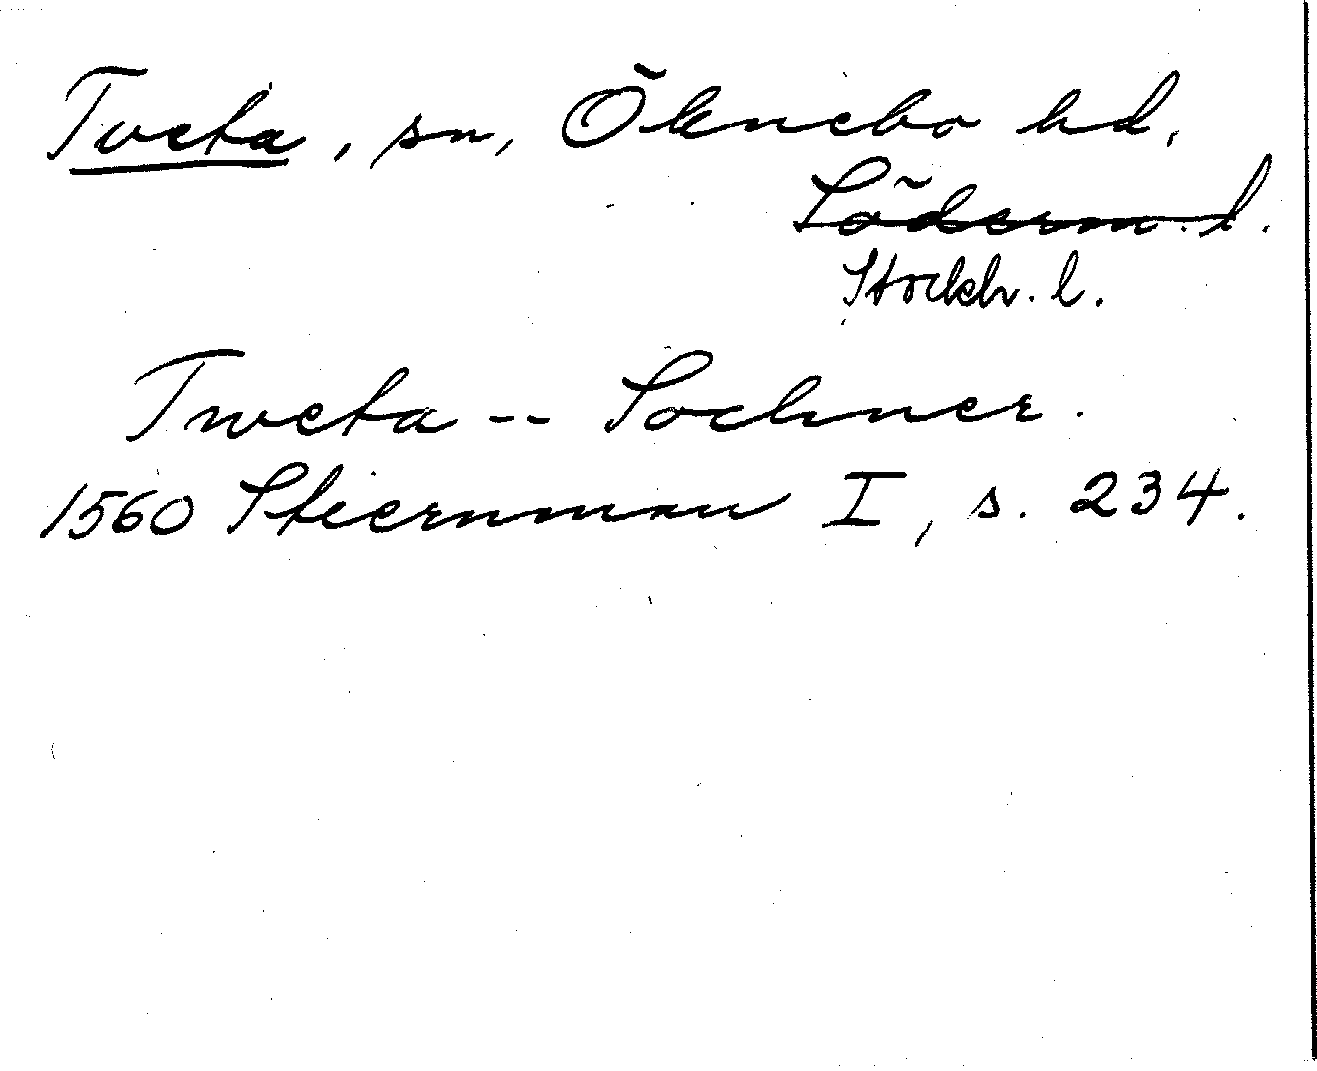 Tveta, sn, Öknebo hd,
Söderm. l.
Stockh. l.
Tweta -- Sochner.
1560 Stiernman I, s. 234.